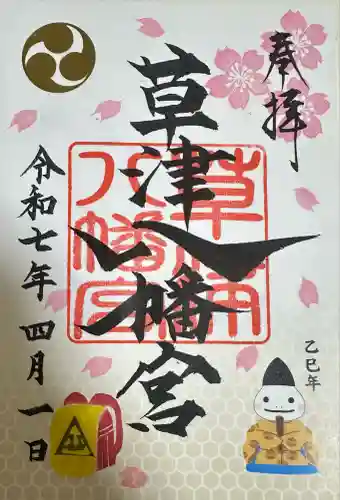 奉拝
草津八幡宮
草津八幡宮
令和七年 四月 一日
乙巳年